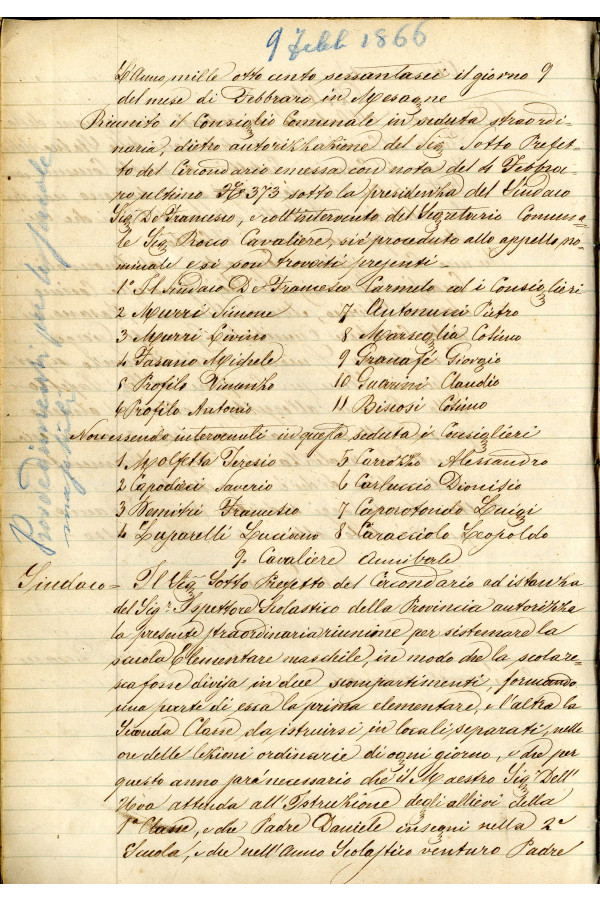 9 Febb 1866
L'Anno mille otto cento sessantasei il giorno 9
del mese di Febbraro in Mesagne
Riunito il Consiglio Comunale in seduta straordi-
naria, dietro autorizzazione del Sig. Sotto Prefet-
to del Circondario emessa con nota del 4 Febbra-
ro ultimo N. 373 sotto la presidenza del Sindaco
Sig. De Francesco, e coll'intervento del Segretario Comuna-
le Sig. Rocco Cavaliere, si è proceduto allo appello no-
minale e si son trovati presenti -
1° Il Sindaco De Francesco Carmelo ed i Consiglieri
2 Murri Simone 7 Antonucci Pietro
3 Murri Livino 8 Marseglia Cosimo
4 Fasano Michele 9 Granafé Giorgio
5 Profilo Vincenzo 10 Guarini Claudio
6 Profilo Antonio 11 Biscosi Cosimo
Non essendo intervenuti in questa seduta i Consiglieri
1 Molfetta Teresio 5 Carrozzo Alessandro
2 Capodieci Saverio 6 Carluccio Dionisio
3 Demitri Francesco 7 Caporotondo Luigi
4 Luparelli Luciano 8 Caracciolo Leopoldo
9. Cavaliere Annibale
Sindaco = Il Sig. Sotto Prefetto del Circondario ad istanza
del Sig. Ispettore Scolastico della Provincia autorizza
la presente straordinaria riunione per sistemare la
scuola Elementare maschile, in modo che la scolare-
sca fosse divisa in due scompartimenti, formando
una parte di essa la prima elementare, e l'altra la
Seconda Classe, da istruirsi in locali separati, nelle
ore delle lezioni ordinarie di ogni giorno, e che per
questo anno sarà necessario che il Maestro Sig. Dell'
Aova attenda all'Istruzione degli allievi della
1a Classe, e che Padre Daniele insegni nella 2a
Scuola, e che nell'Anno Scolastico venturo Padre
Provvedimenti per le scuole
maschili